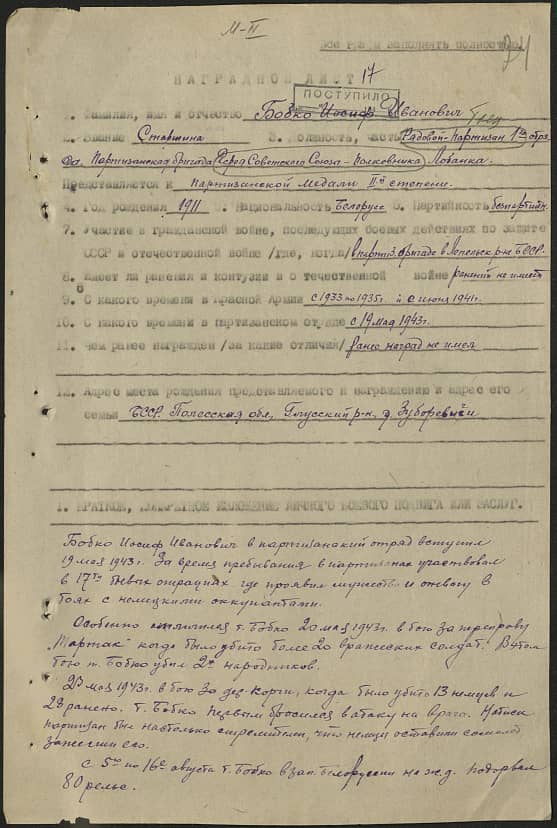 М-II
НАГРАДНОЙ ЛИСТ 17
ПОСТУПИЛО
1. Фамилия, имя и отчество Бобко Иосиф Иванович
2. Звание Старшина 3. Должность, часть Рядовой-партизан 1го
Партизанская бригада Героя Советского Союза - Полковника Лобанка.
Представляется к Партизанской медали II-ой степени.
4. Год рождения 1911 5. Национальность Белорус 6. Партийность беспартийн.
7. Участие в гражданской войне, последующих боевых действиях по защите
СССР и отечественной войне /где, когда/ в партиз. бригаде в Лепельск. р-не БССР.
8. Имеет ли ранения и контузии в отечественной войне ранений не имеет
9. С какого времени в Красной Армии с 1933 по 1935г. и с июня 1941г.
10. С какого времени в партизанском отряде с 19 мая 1943г.
11. Чем ранее награжден /за какие отличия/ ранее наград не имел
12. Адрес места рождения представляемого к награждению и адрес его
семьи БССР. Полесская обл, Глусский р-н. д. Зуборевичи
1. КРАТКОЕ, КОНКРЕТНОЕ ИЗЛОЖЕНИЕ ЛИЧНОГО БОЕВОГО ПОДВИГА ИЛИ ЗАСЛУГ.
Бобко Иосиф Иванович в партизанский отряд вступил
19 мая 1943г. За время пребывания в партизанах участвовал
в 17ти боевых операциях где проявил мужество и отвагу в
боях с немецкими оккупантами.
Особенно отличился т. Бобко 20 мая 1943г. в бою за переправу
когда было убито более 20 вражеских солдат. В этом
бою т. Бобко убил 2х народников.
23 мая 1943г. в бою за дер. Корги, когда было убито 13 немцев и
28 ранено. т. Бобко первым бросился в атаку на врага. Натиск
партизан был настолько стремителен, что немцы оставили
занесли его.
С 5го по 16е августа т. Бобко в зап. Белоруссии на ж.д. подорвал
80 рельс.